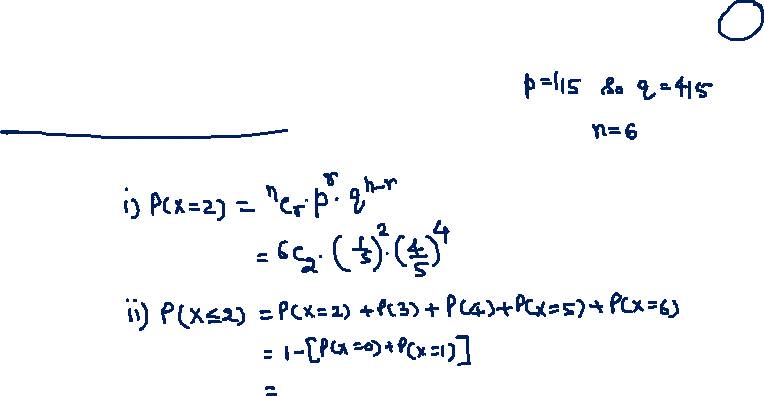 p=1/5 so q=4/5
n=6
i) P(X=2) = ⁿCᵣ·pʳ·qⁿ⁻ʳ
= 6C₂·(1/5)²·(4/5)⁴
ii) P(X≤2) = P(X=2)+P(3)+P(4)+P(X=5)+P(X=6)
= 1-[P(X=0)+P(X=1)]
=